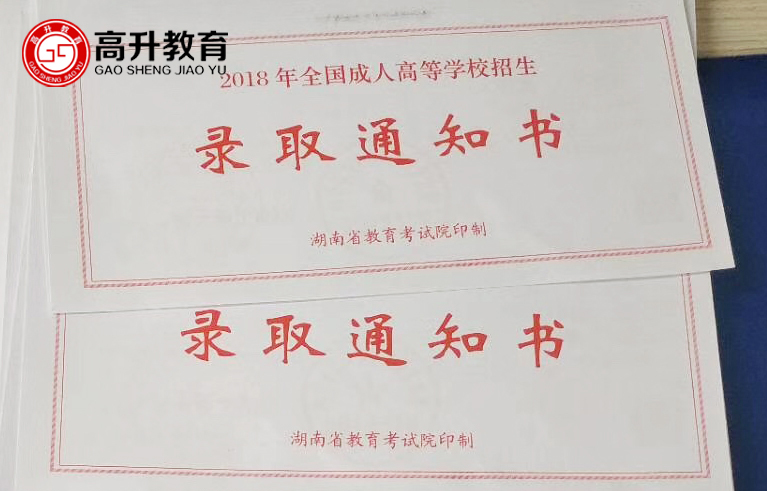 高升教育
GAO SHENG JIAO YU
2018年全国成人高等学校招生
录取通知书
湖南省教育考试院印制
录取通知书
湖南省教育考试院印制